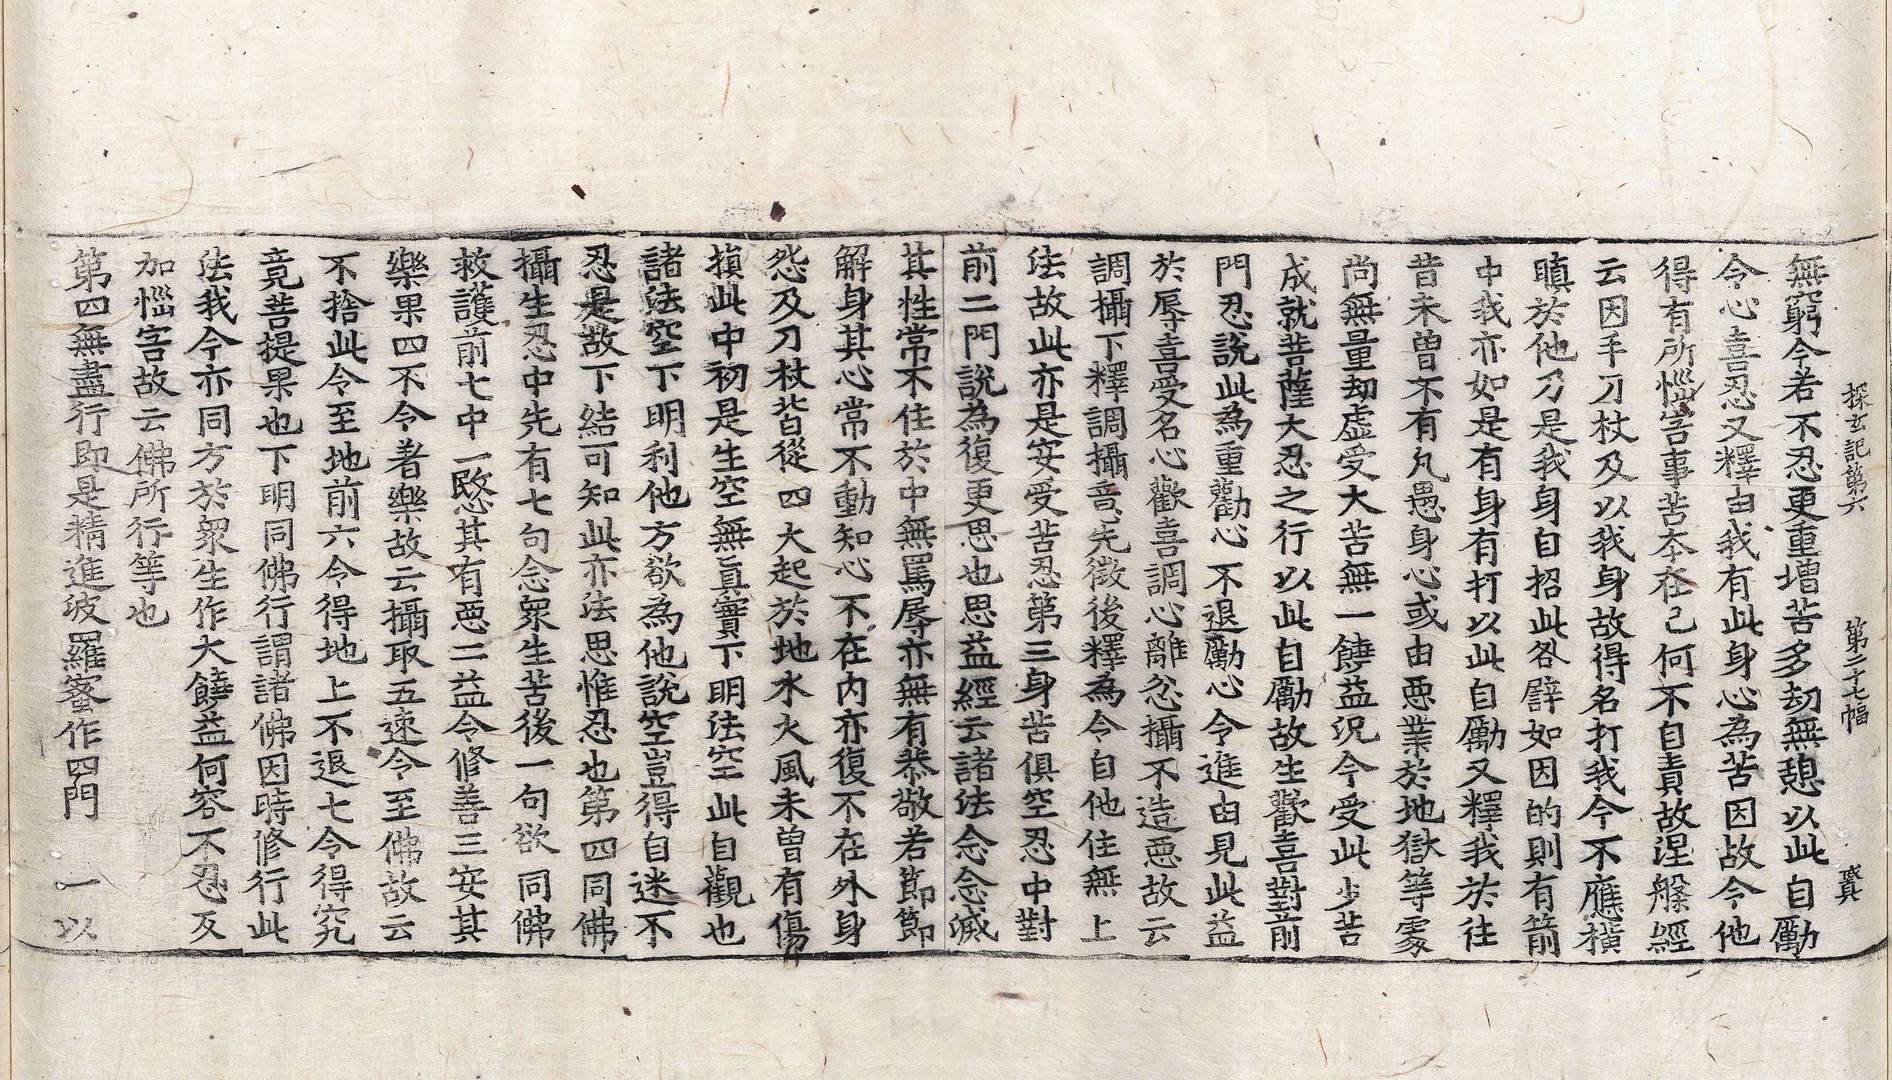 探玄記第六 第二十七幅 賮
無窮今若不忍更重增苦多劫無憩以此自勵
令心喜忍又釋由我有此身心為苦因故令他
得有所惱害事苦本在己何不自責故涅槃經
云因手刀杖及以我身故得名打我今不應橫
瞋於他刀是我身自招此咎譬如因的則有箭
中我亦如是有身有打以此自勵又釋我於往
昔未曾不有凡愚身心或由惡業於地獄等處
尚無量劫虛受大苦無一饒益況今受此少苦
成就菩薩大忍之行以此自勵故生歡喜對前
門忍說此為重勸心不退勵心令進由見此益
於辱喜受名心歡喜調心離忿攝不造惡故云
調攝下釋調攝意先徵後釋為令自他住無上
法故此亦是安受苦忍第三身苦俱空忍中對
前二門說為復更思也思益經云諸法念念滅
其性常不住於中無罵辱亦無有恭敬若節節
解身其心常不動知心不在內亦復不在外身
怨及刀杖皆從四大起於地水火風未曾有傷
損此中初是生空無真實下明法空此自觀也
諸法空下明利他方欲為他說空豈得自迷不
忍是故下結可知此亦法思惟忍也第四同佛
攝生忍中先有七句念眾生苦後一句欲同佛
救護前七中一愍其有惡二益令修善三安其
樂果四不令著樂故云攝取五速令至佛故云
不捨此令至地前六令得地上不退七令得究
竟菩提果也下明同佛行謂諸佛因時修行此
法我今亦同方於眾生作大饒益何容不忍反
加惱害故云佛所行等也
第四無盡行即是精進波羅蜜作四門 一以